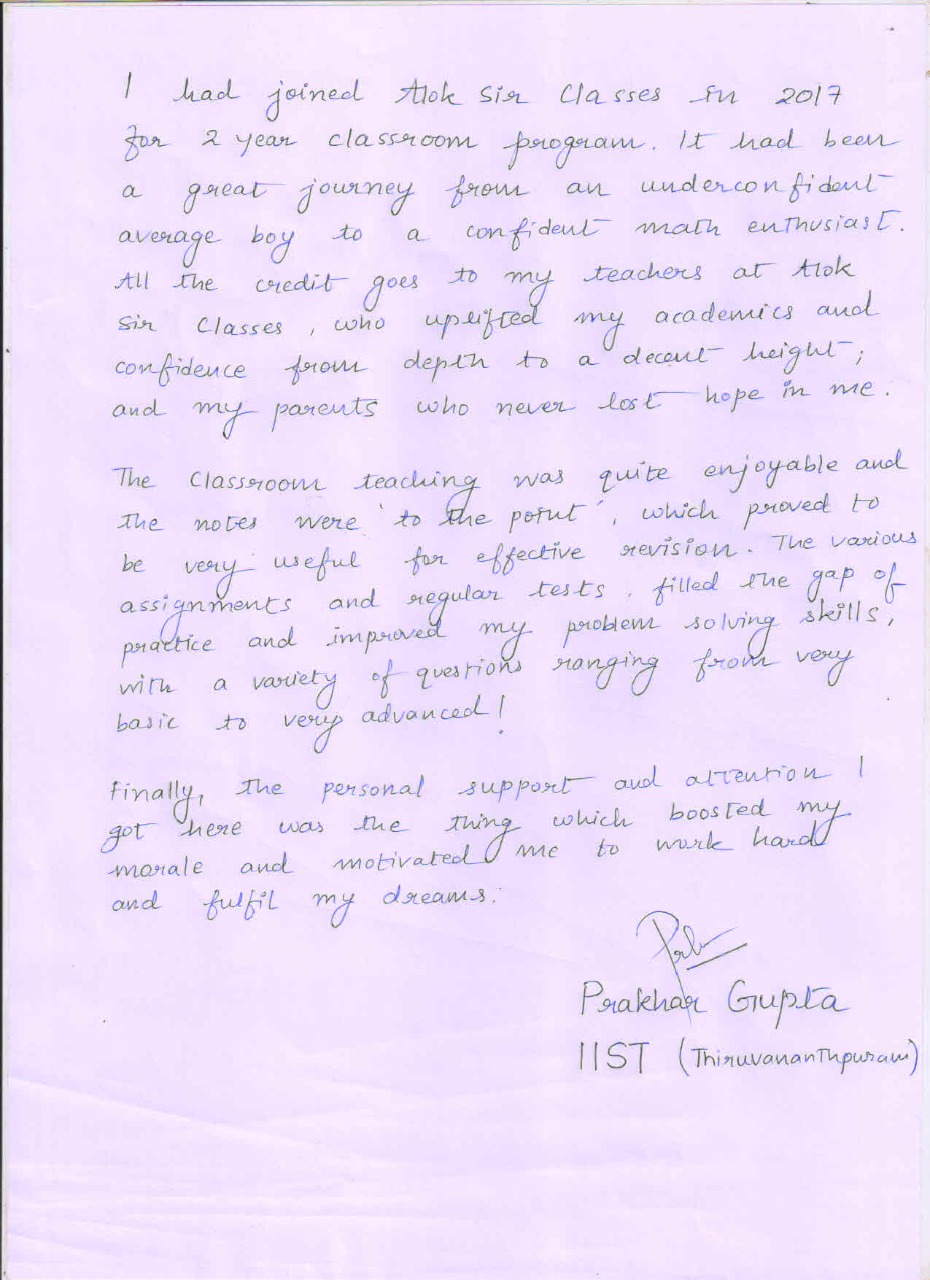 I had joined Alok Sir Classes in 2017
for 2 year classroom program. It had been
a great journey from an underconfident
average boy to a confident math enthusiast.
All the credit goes to my teachers at Alok
Sir Classes, who uplifted my academics and
confidence from depth to a decent height;
and my parents who never lost hope in me.
The Classroom teaching was quite enjoyable and
the notes were 'to the point', which proved to
be very useful for effective revision. The various
assignments and regular tests, filled the gap of
practice and improved my problem solving skills,
with a variety of questions ranging from very
basic to very advanced!
Finally, the personal support and attention I
got here was the thing which boosted my
morale and motivated me to work hard
and fulfil my dreams.
Prakhar Gupta
IIST (Thiruvananthpuram)